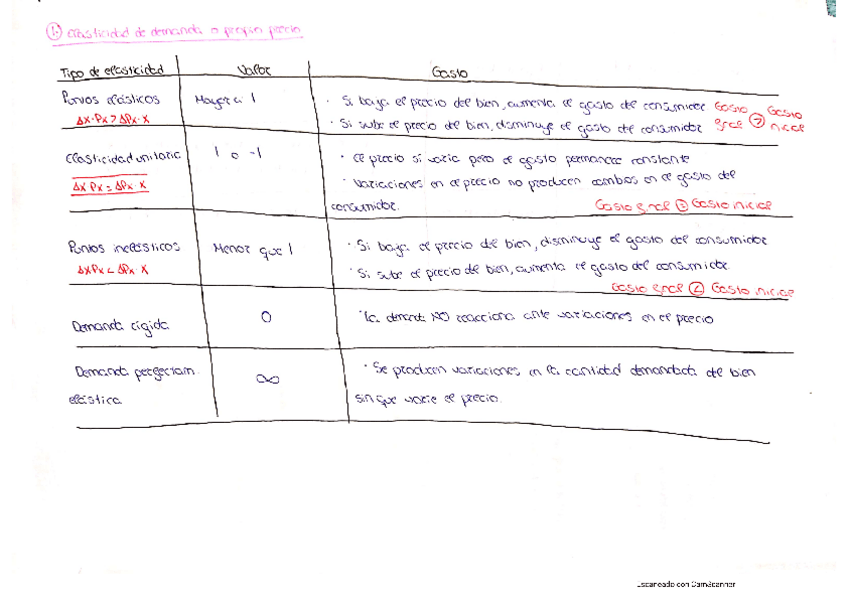 1. elasticidad de demanda o propio precio
Tipo de elasticidad Valor Gasto
Puntos elásticos Mayor a 1 · Si baja el precio del bien, aumenta el gasto del consumidor. Gasto final > Gasto inicial
ΔX·Px > ΔPx·X · Si sube el precio del bien, disminuye el gasto del consumidor
Elasticidad unitaria 1 o -1 · el precio si varia pero el gasto permanece constante
ΔX Px = ΔPx·X · Variaciones en el precio no producen cambios en el gasto del
consumidor. Gasto final = Gasto inicial
Puntos inelásticos Menor que 1 · Si baja el precio del bien, disminuye el gasto del consumidor
ΔXPx < ΔPx·X · Si sube el precio del bien, aumenta el gasto del consumidor.
Gasto final < Gasto inicial
Demanda rígida 0 · La demanda NO reacciona ante variaciones en el precio
Demanda perfectam. ∞ · Se producen variaciones en la cantidad demandada del bien
elástica sin que varíe el precio.
Escaneado con CamScanner